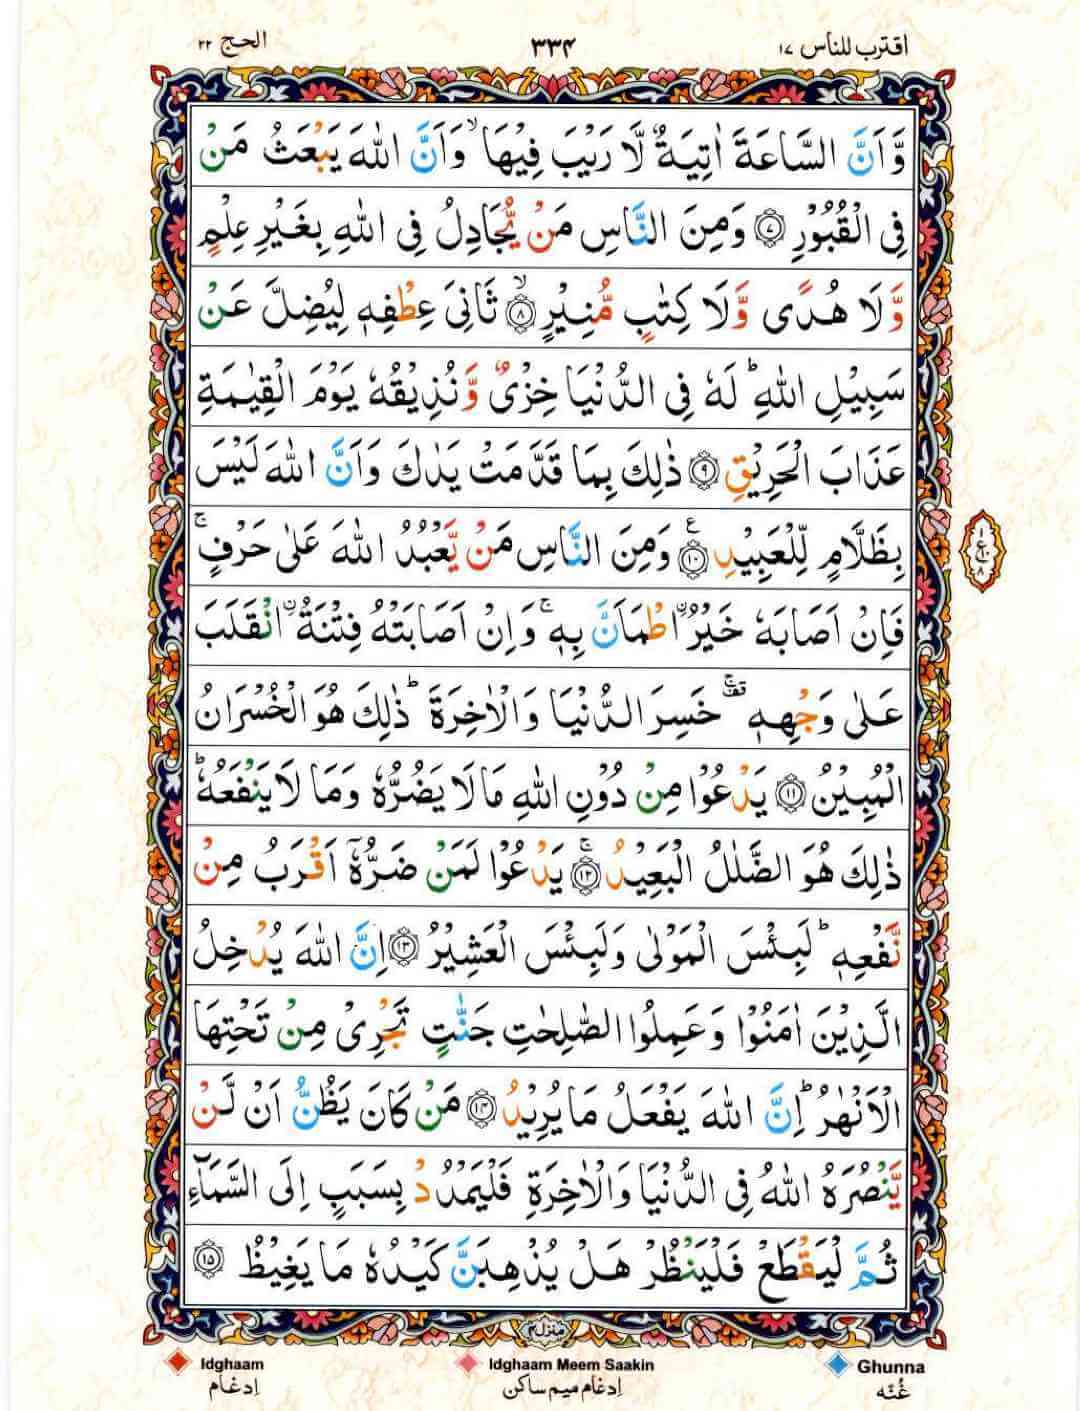 اقترب للناس ۱۷ ۳۳۴ الحج ۲۲
وَّاَنَّ السَّاعَةَ اٰتِيَةٌ لَّا رَيْبَ فِيْهَا ۙ وَاَنَّ اللّٰهَ يَبْعَثُ مَنْ
فِى الْقُبُوْرِ ۝۷ وَمِنَ النَّاسِ مَنْ يُّجَادِلُ فِى اللّٰهِ بِغَيْرِ عِلْمٍ
وَّلَا هُدًى وَّلَا كِتٰبٍ مُّنِيْرٍ ۙ‏۝۸ ثَانِىَ عِطْفِهٖ لِيُضِلَّ عَنْ
سَبِيْلِ اللّٰهِ ؕ لَهٗ فِى الدُّنْيَا خِزْىٌ وَّنُذِيْقُهٗ يَوْمَ الْقِيٰمَةِ
عَذَابَ الْحَرِيْقِ ۝۹ ذٰلِكَ بِمَا قَدَّمَتْ يَدٰكَ وَاَنَّ اللّٰهَ لَيْسَ
بِظَلَّامٍ لِّلْعَبِيْدِ ۝۱۰ ع وَمِنَ النَّاسِ مَنْ يَّعْبُدُ اللّٰهَ عَلٰى حَرْفٍ ۚ
۱ ع ۱۰ ۸
فَاِنْ اَصَابَهٗ خَيْرُ ۨاطْمَاَنَّ بِهٖ ۚ وَاِنْ اَصَابَتْهُ فِتْنَةُ ۨانْقَلَبَ
عَلٰى وَجْهِهٖ ۚقف خَسِرَ الدُّنْيَا وَالْاٰخِرَةَ ؕ ذٰلِكَ هُوَ الْخُسْرَانُ
الْمُبِيْنُ ۝۱۱ يَدْعُوْا مِنْ دُوْنِ اللّٰهِ مَا لَا يَضُرُّهٗ وَمَا لَا يَنْفَعُهٗ ؕ
ذٰلِكَ هُوَ الضَّلٰلُ الْبَعِيْدُ ۚ‏۝۱۲ يَدْعُوْا لَمَنْ ضَرُّهٗۤ اَقْرَبُ مِنْ
نَّفْعِهٖ ؕ لَبِئْسَ الْمَوْلٰى وَلَبِئْسَ الْعَشِيْرُ ۝۱۳ اِنَّ اللّٰهَ يُدْخِلُ
الَّذِيْنَ اٰمَنُوْا وَعَمِلُوا الصّٰلِحٰتِ جَنّٰتٍ تَجْرِىْ مِنْ تَحْتِهَا
الْاَنْهٰرُ ؕ اِنَّ اللّٰهَ يَفْعَلُ مَا يُرِيْدُ ۝۱۴ مَنْ كَانَ يَظُنُّ اَنْ لَّنْ
يَّنْصُرَهُ اللّٰهُ فِى الدُّنْيَا وَالْاٰخِرَةِ فَلْيَمْدُدْ بِسَبَبٍ اِلَى السَّمَآءِ
ثُمَّ لْيَقْطَعْ فَلْيَنْظُرْ هَلْ يُذْهِبَنَّ كَيْدُهٗ مَا يَغِيْظُ ۝۱۵
منزل۴
Idghaam Idghaam Meem Saakin Ghunna
اِدغام اِدغام میم ساکن غُنّه